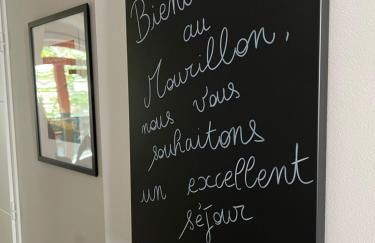 au
Mourillon,
nous vous
souhaitons
un excellent
séjour